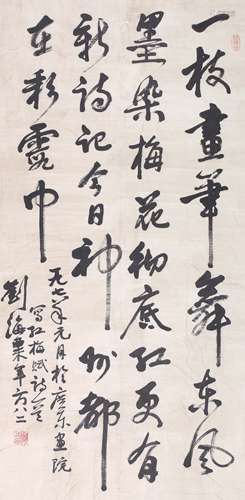 一枝画笔舞东风
墨染梅花彻底红更有
新诗记今日神州都
在彩霞中
一九七八年元月於广东画院
写红梅赋诗一首
刘海粟年方八二